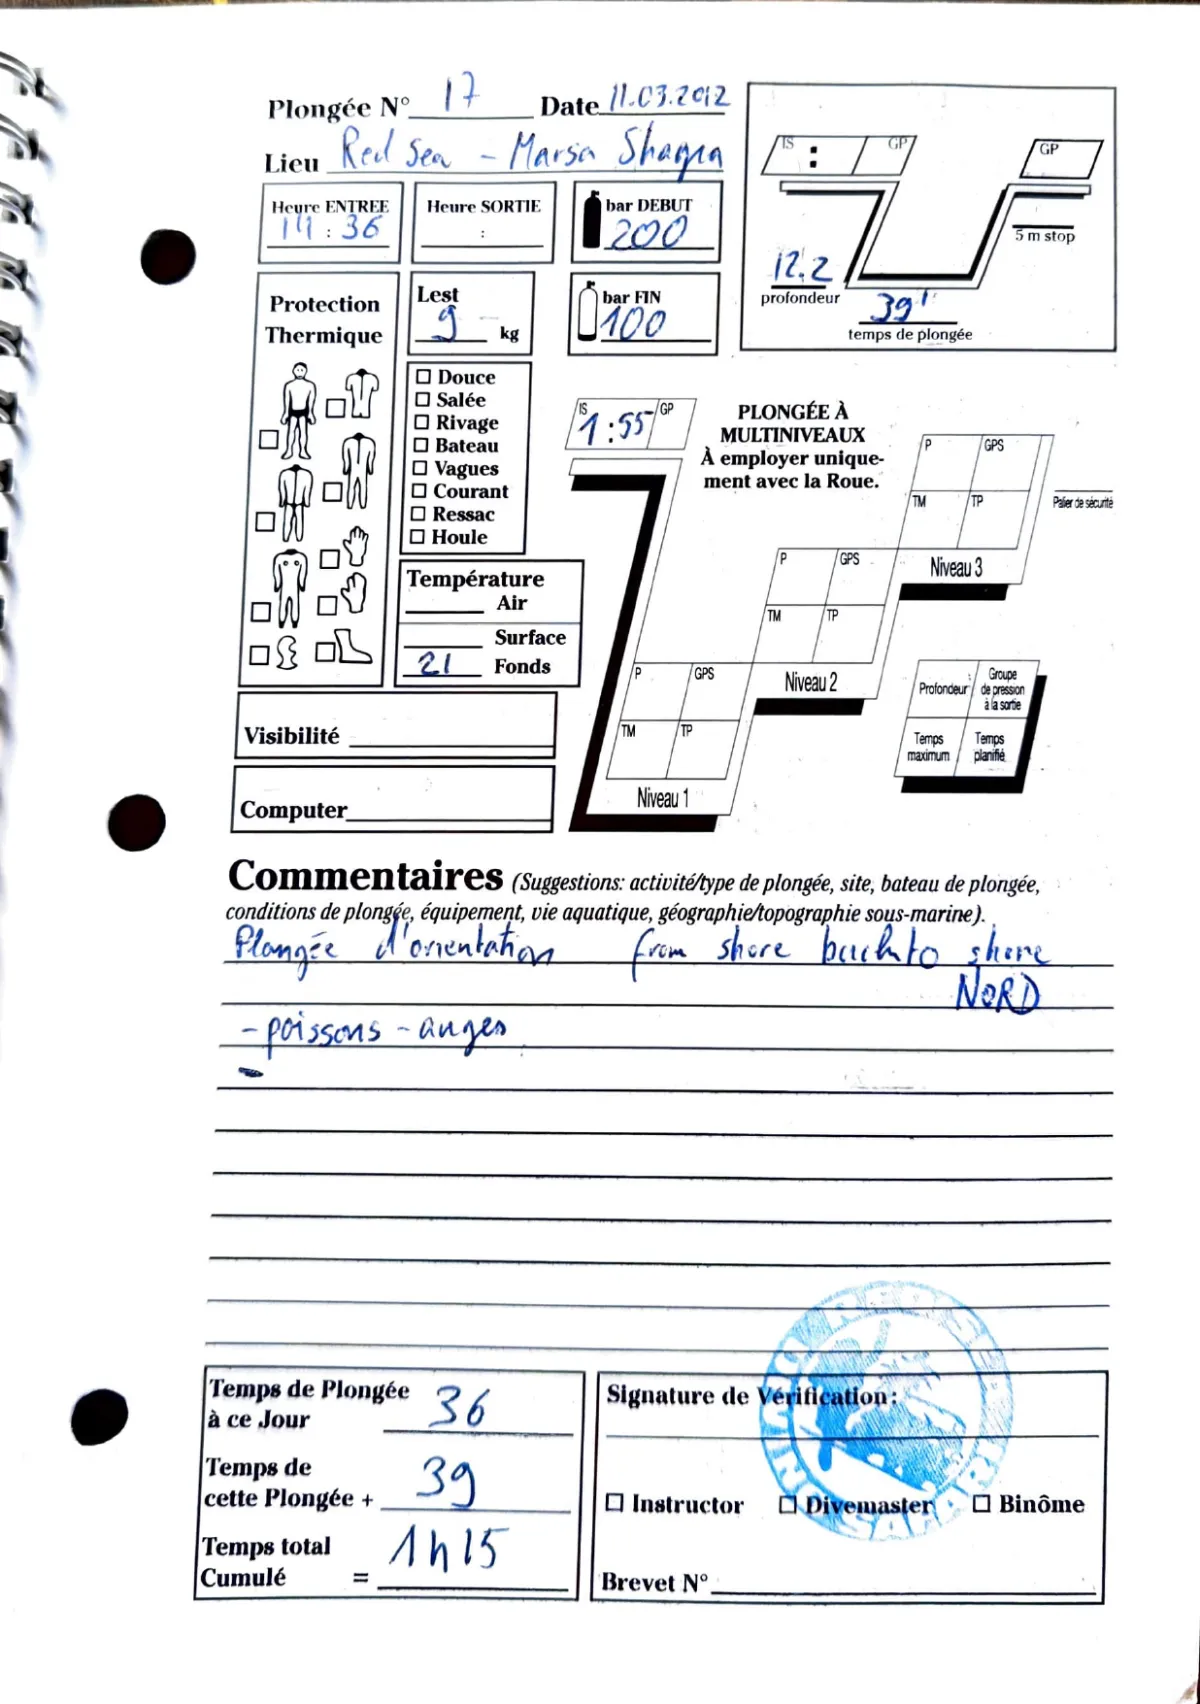 Plongée N° 17 Date 11.03.2012
Lieu Red Sea - Marsa Shagra
Heure ENTREE
14 : 36
Heure SORTIE
:
bar DEBUT
200
IS : GP
GP
5 m stop
12.2
profondeur
39'
temps de plongée
Protection
Thermique
Lest
9 kg
bar FIN
100
Douce
Salée
Rivage
Bateau
Vagues
Courant
Ressac
Houle
IS 1:55 GP
PLONGÉE À
MULTINIVEAUX
À employer unique-
ment avec la Roue.
P GPS
TM TP
Palier de sécurité
Niveau 3
P GPS
TM TP
Niveau 2
P GPS
TM TP
Niveau 1
Profondeur
Groupe
de pression
à la sortie
Temps
maximum
Temps
planifié
Température
Air
Surface
21 Fonds
Visibilité
Computer
Commentaires (Suggestions: activité/type de plongée, site, bateau de plongée,
conditions de plongée, équipement, vie aquatique, géographie/topographie sous-marine).
Plongée d'orientation from shore back to shore
NORD
- poissons - anges
-
Temps de Plongée
à ce Jour 36
Temps de
cette Plongée + 39
Temps total
Cumulé = 1h15
Signature de Vérification:
Instructor Divemaster Binôme
Brevet N°